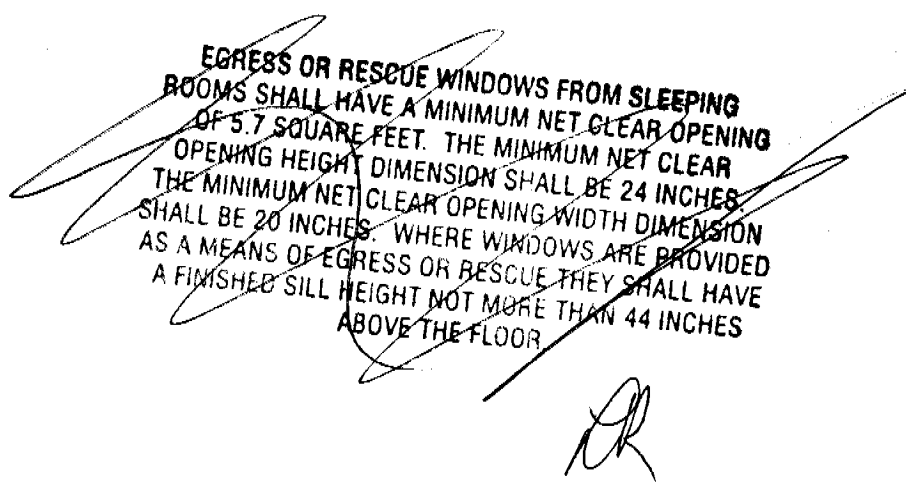 EGRESS OR RESCUE WINDOWS FROM SLEEPING
ROOMS SHALL HAVE A MINIMUM NET CLEAR OPENING
OF 5.7 SQUARE FEET. THE MINIMUM NET CLEAR
OPENING HEIGHT DIMENSION SHALL BE 24 INCHES.
THE MINIMUM NET CLEAR OPENING WIDTH DIMENSION
SHALL BE 20 INCHES. WHERE WINDOWS ARE PROVIDED
AS A MEANS OF EGRESS OR RESCUE THEY SHALL HAVE
A FINISHED SILL HEIGHT NOT MORE THAN 44 INCHES
ABOVE THE FLOOR.